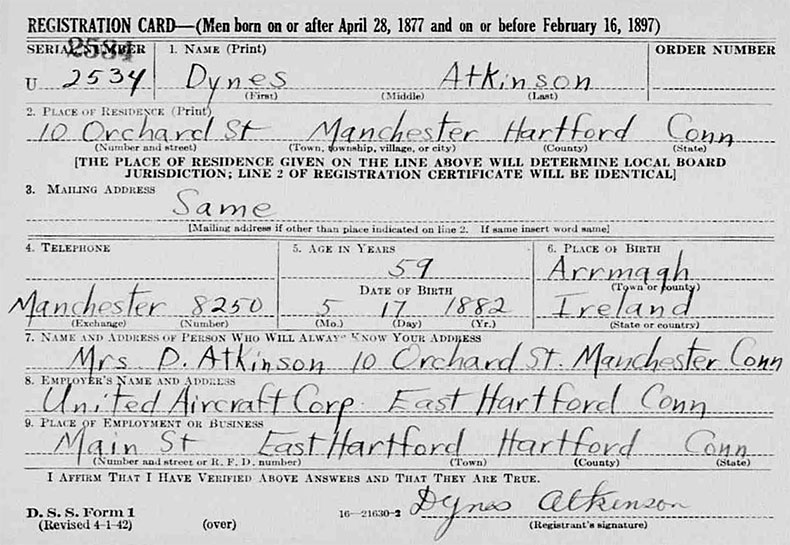 REGISTRATION CARD—(Men born on or after April 28, 1877 and on or before February 16, 1897)
SERIAL NUMBER 1. NAME (Print) ORDER NUMBER
2534
U 2534 Dynes Atkinson
(First) (Middle) (Last)
2. PLACE OF RESIDENCE (Print)
10 Orchard St Manchester Hartford Conn
(Number and street) (Town, township, village, or city) (County) (State)
[THE PLACE OF RESIDENCE GIVEN ON THE LINE ABOVE WILL DETERMINE LOCAL BOARD
JURISDICTION; LINE 2 OF REGISTRATION CERTIFICATE WILL BE IDENTICAL]
3. MAILING ADDRESS
Same
[Mailing address if other than place indicated on line 2. If same insert word same]
4. TELEPHONE 5. AGE IN YEARS 6. PLACE OF BIRTH
59 Arrmagh
DATE OF BIRTH (Town or county)
Manchester 8250 5 17 1882 Ireland
(Exchange) (Number) (Mo.) (Day) (Yr.) (State or country)
7. NAME AND ADDRESS OF PERSON WHO WILL ALWAYS KNOW YOUR ADDRESS
Mrs D. Atkinson 10 Orchard St. Manchester Conn
8. EMPLOYER'S NAME AND ADDRESS
United Aircraft Corp East Hartford Conn
9. PLACE OF EMPLOYMENT OR BUSINESS
Main St East Hartford Hartford Conn
(Number and street or R. F. D. number) (Town) (County) (State)
I AFFIRM THAT I HAVE VERIFIED ABOVE ANSWERS AND THAT THEY ARE TRUE.
Dynes Atkinson
D. S. S. Form 1
(Revised 4-1-42) (over) 16—21630-2 (Registrant's signature)